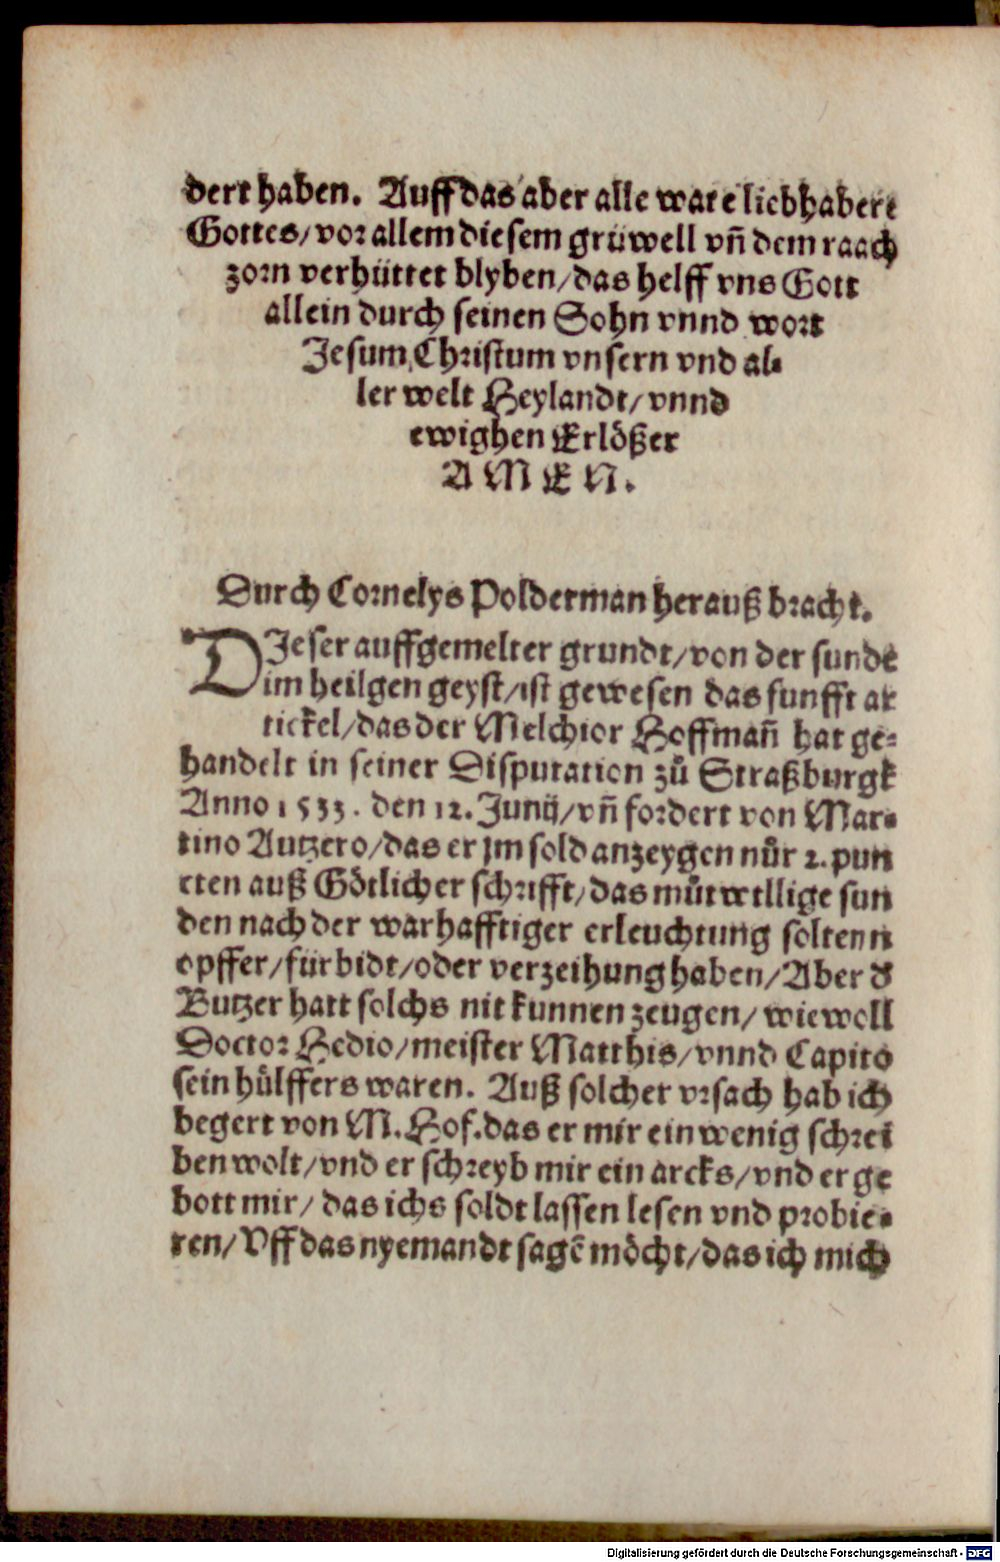 dert haben. Auff das aber alle ware liebhabere
Gottes/vor allem diesem grüwell vñ dem raach
zorn verhüttet blyben/das helff vns Gott
allein durch seinen Sohn vnnd wort
Jesum Christum vnsern vnd al-
ler welt Heylandt/vnnd
ewighen Erlößer
AMEN.
Durch Cornelys Polderman herauß bracht.
DJeser auffgemelter grundt/von der sunde
im heilgen geyst/ist gewesen das funfft ar
tickel/das der Melchior Hoffmañ hat ge-
handelt in seiner Disputation zů Straßburgk
Anno 1533. den 12. Junij/vñ fordert von Mar-
tino Autzero/das er jm sold anzeygen nůr 2. pun
cten auß Götlicher schrifft/das můtwillige sun
den nach der warhafftiger erleuchtung solten n
opffer/fürbidt/oder verzeihung haben/Aber d'
Butzer hatt solchs nit kunnen zeugen/wiewoll
Doctor Hedio/meister Matthis/vnnd Capito
sein hülffers waren. Auß solcher vrsach hab ich
begert von M. Hof. das er mir ein wenig schrei
ben wolt/vnd er schreyb mir ein arcks/vnd er ge
bott mir/das ichs soldt lassen lesen vnd probie-
ren/Vff das nyemandt sagē möcht/das ich mich
Digitalisierung gefördert durch die Deutsche Forschungsgemeinschaft - DFG